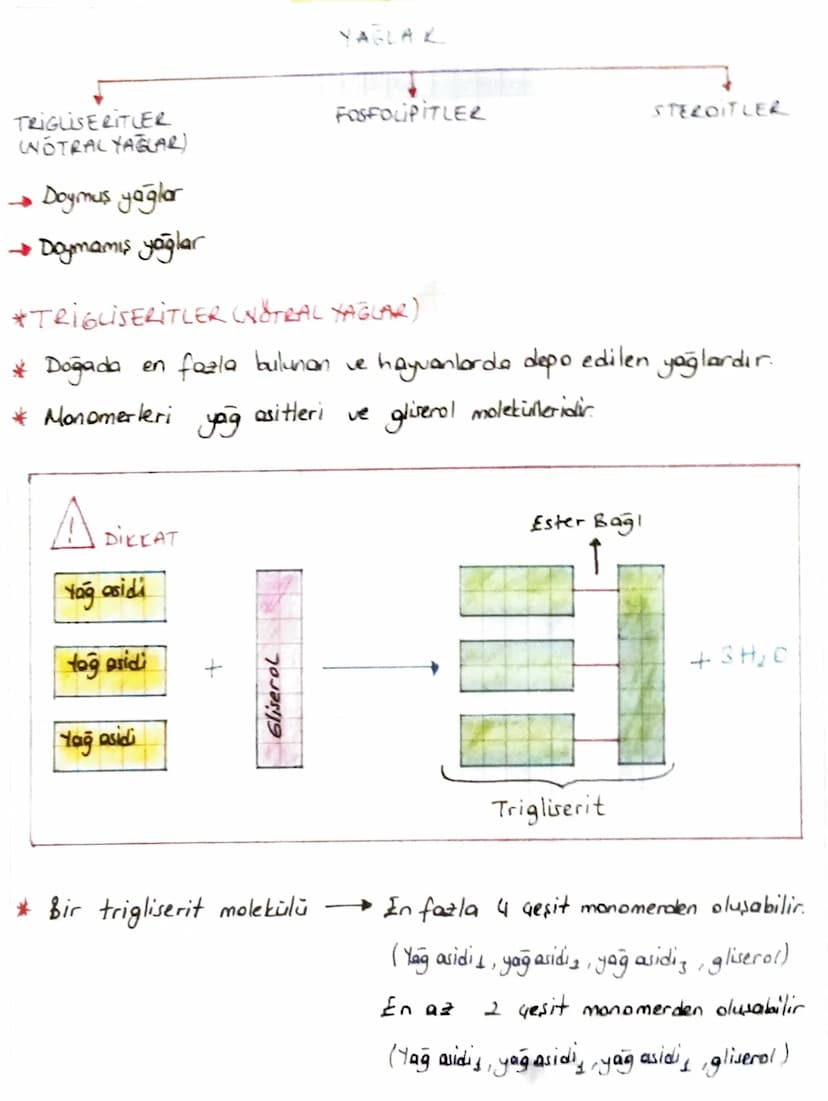 YAĞLAR
TRİGLİSERİTLER FOSFOLİPİTLER STEROİTLER
(NÖTRAL YAĞLAR)
→ Doymuş yağlar
→ Doymamış yağlar
* TRİGLİSERİTLER (NÖTRAL YAĞLAR)
* Doğada en fazla bulunan ve hayvanlarda depo edilen yağlardır.
* Monomerleri yağ asitleri ve gliserol molekülleridir.
! DİKKAT
Ester Bağı
Yağ asidi
Yağ asidi
Yağ asidi
+
Gliserol
+ 3H₂O
Trigliserit
* Bir trigliserit molekülü → En fazla 4 çeşit monomerden oluşabilir.
(Yağ asidi₁, yağ asidi₂, yağ asidi₃, gliserol)
En az 2 çeşit monomerden oluşabilir
(Yağ asidi₁, yağ asidi₁, yağ asidi₁, gliserol)